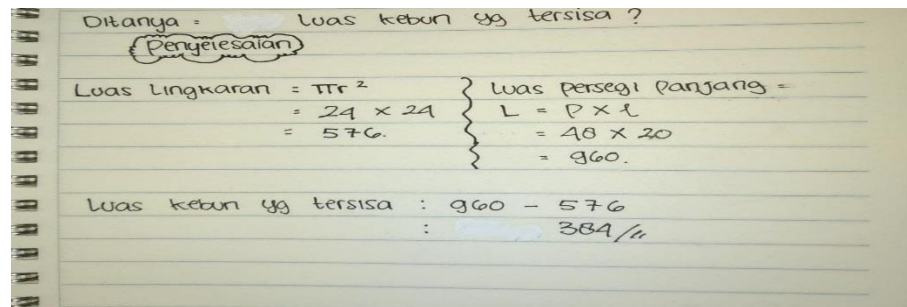 Ditanya = Luas kebun yg tersisa ?
Penyelesaian
Luas Lingkaran = πr²
= 24 × 24
= 576.
Luas persegi panjang =
L = P × l
= 48 × 20
= 960.
Luas kebun yg tersisa : 960 - 576
: 384 //